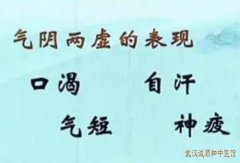 气阴两虚的表现
口渴 自汗
气短 神疲
武汉诚顺和中医馆